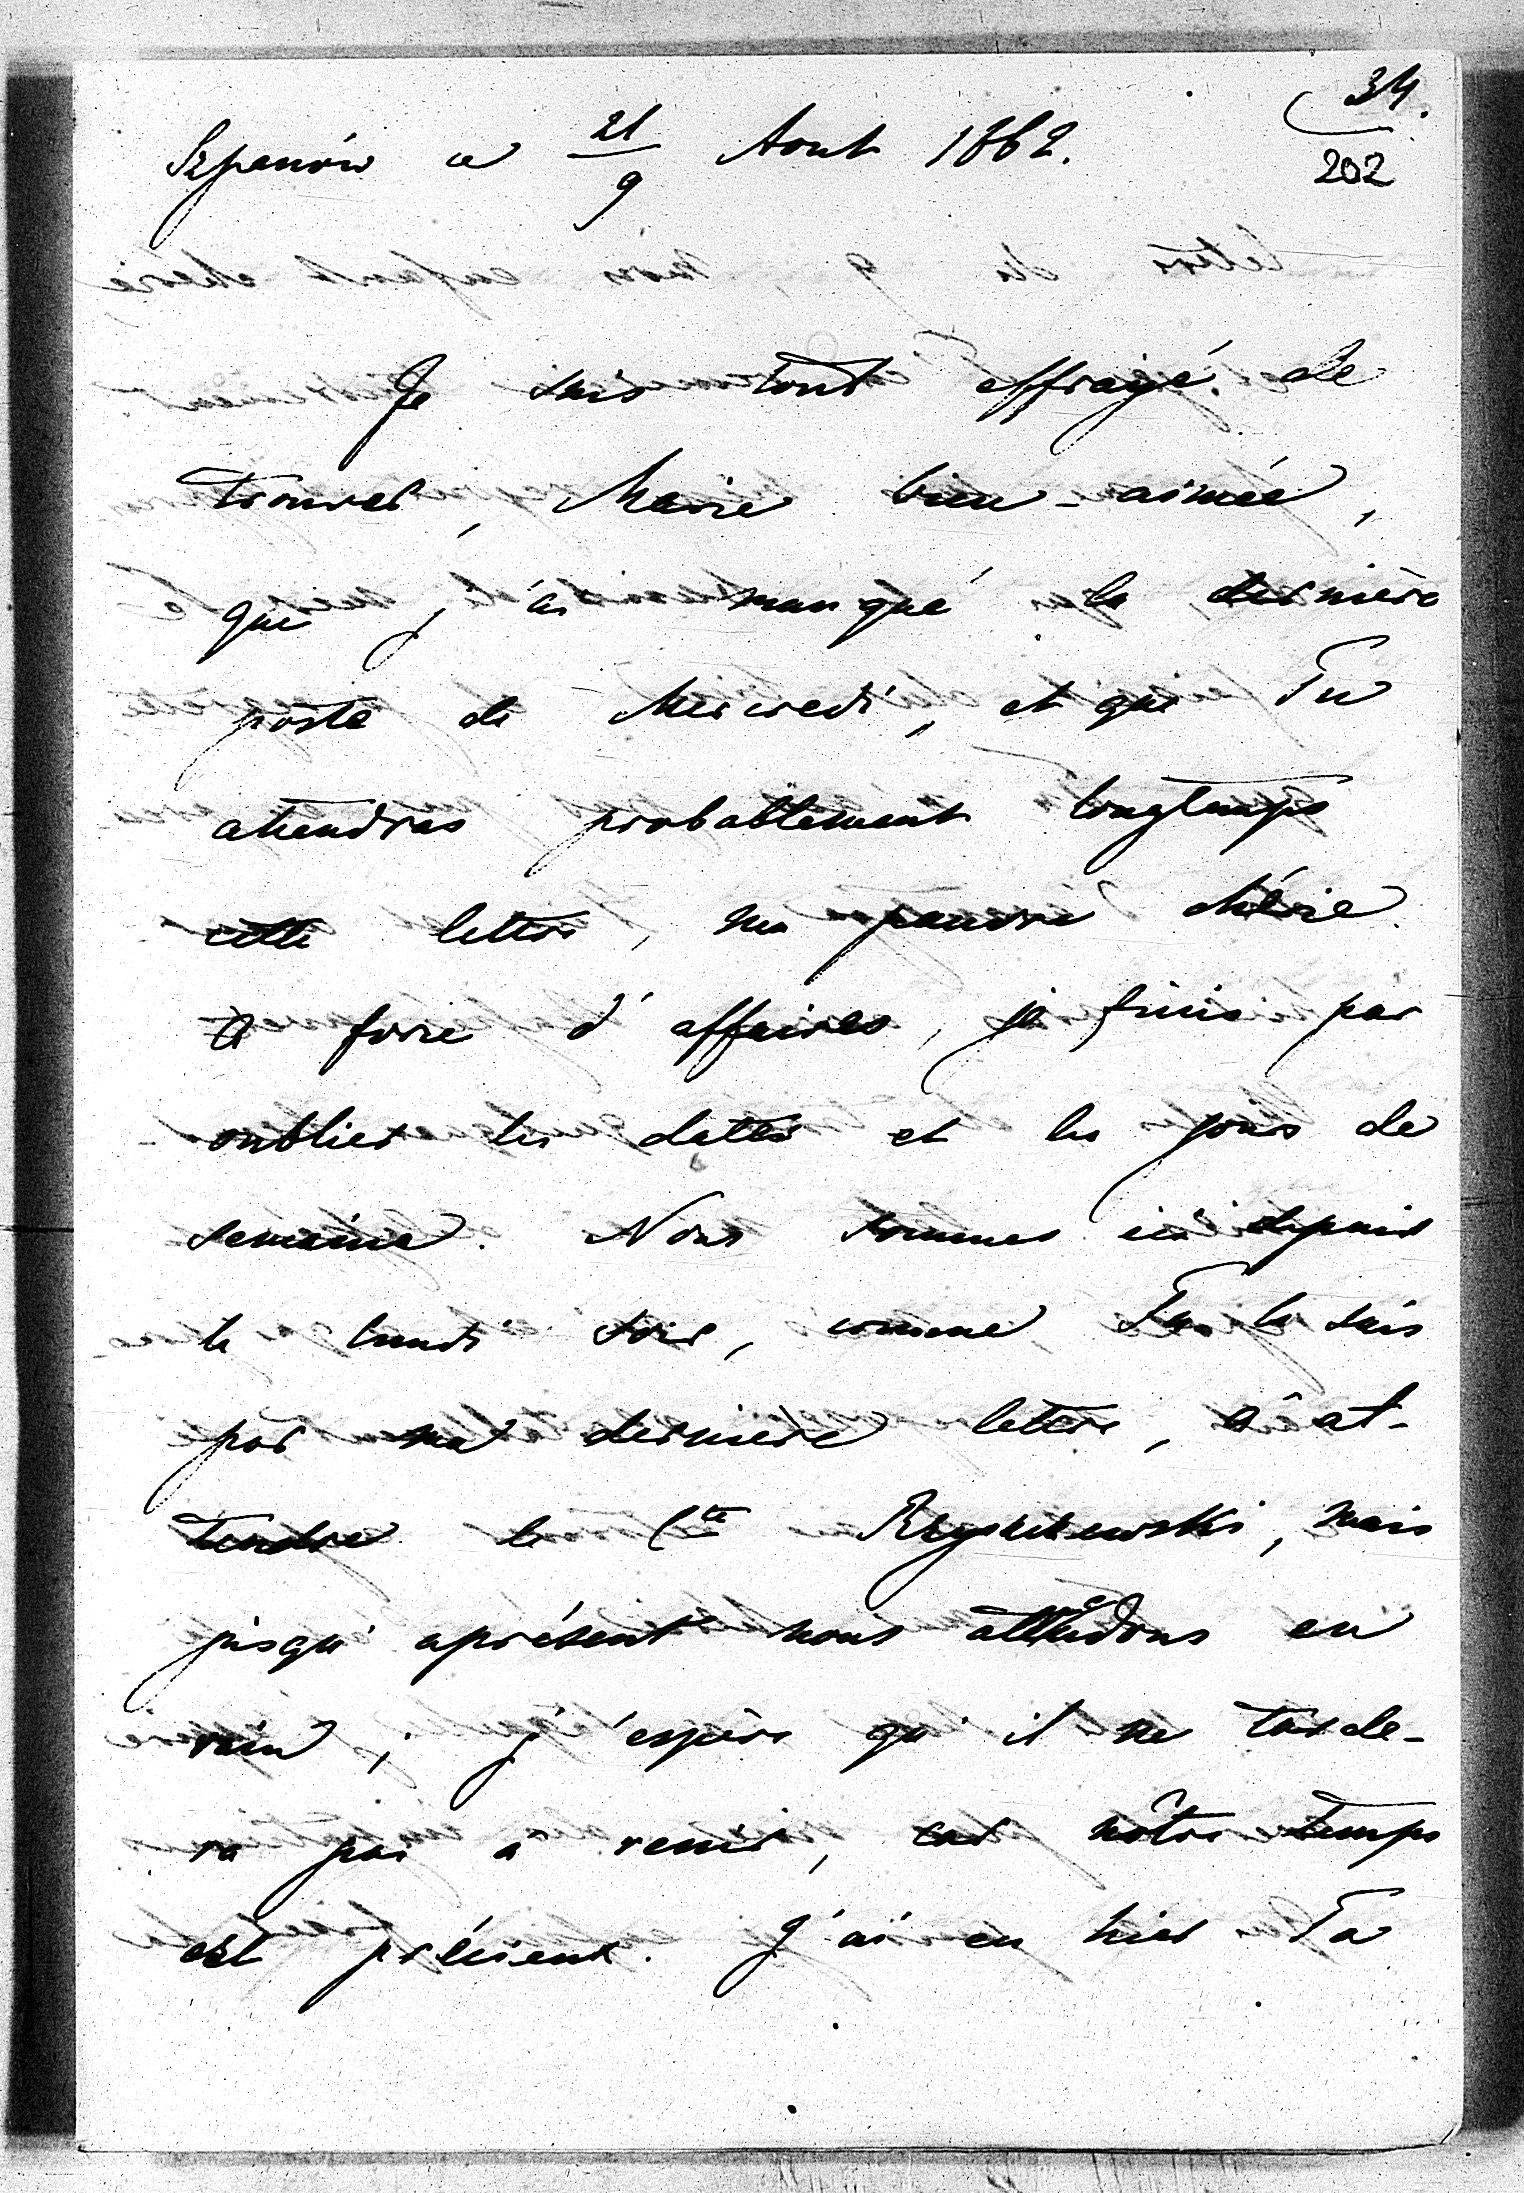 34.
202
Szpanów ce 21/9 Aout 1862.
Je suis tout effrayé de
trouver, Marie bien-aimée,
que j'ai manqué la dernière
poste de Mercredi, et que Tu
attendras probablement longtemps
cette lettre, ma pauvre chérie.
A force d'affaires, je finis par
oublier les dattes et les jours de
semaine. Nous sommes ici depuis
le lundi soir, comme Tu le sais
par ma derniere lettre, à at-
tendre le Cte Ryszczewski, mais
jusqu'aprésent nous attendons en
vain; j'espère qu'il ne tarde-
ra pas à venir, car nôtre temps
est précieux. J'ai eu hier Ta